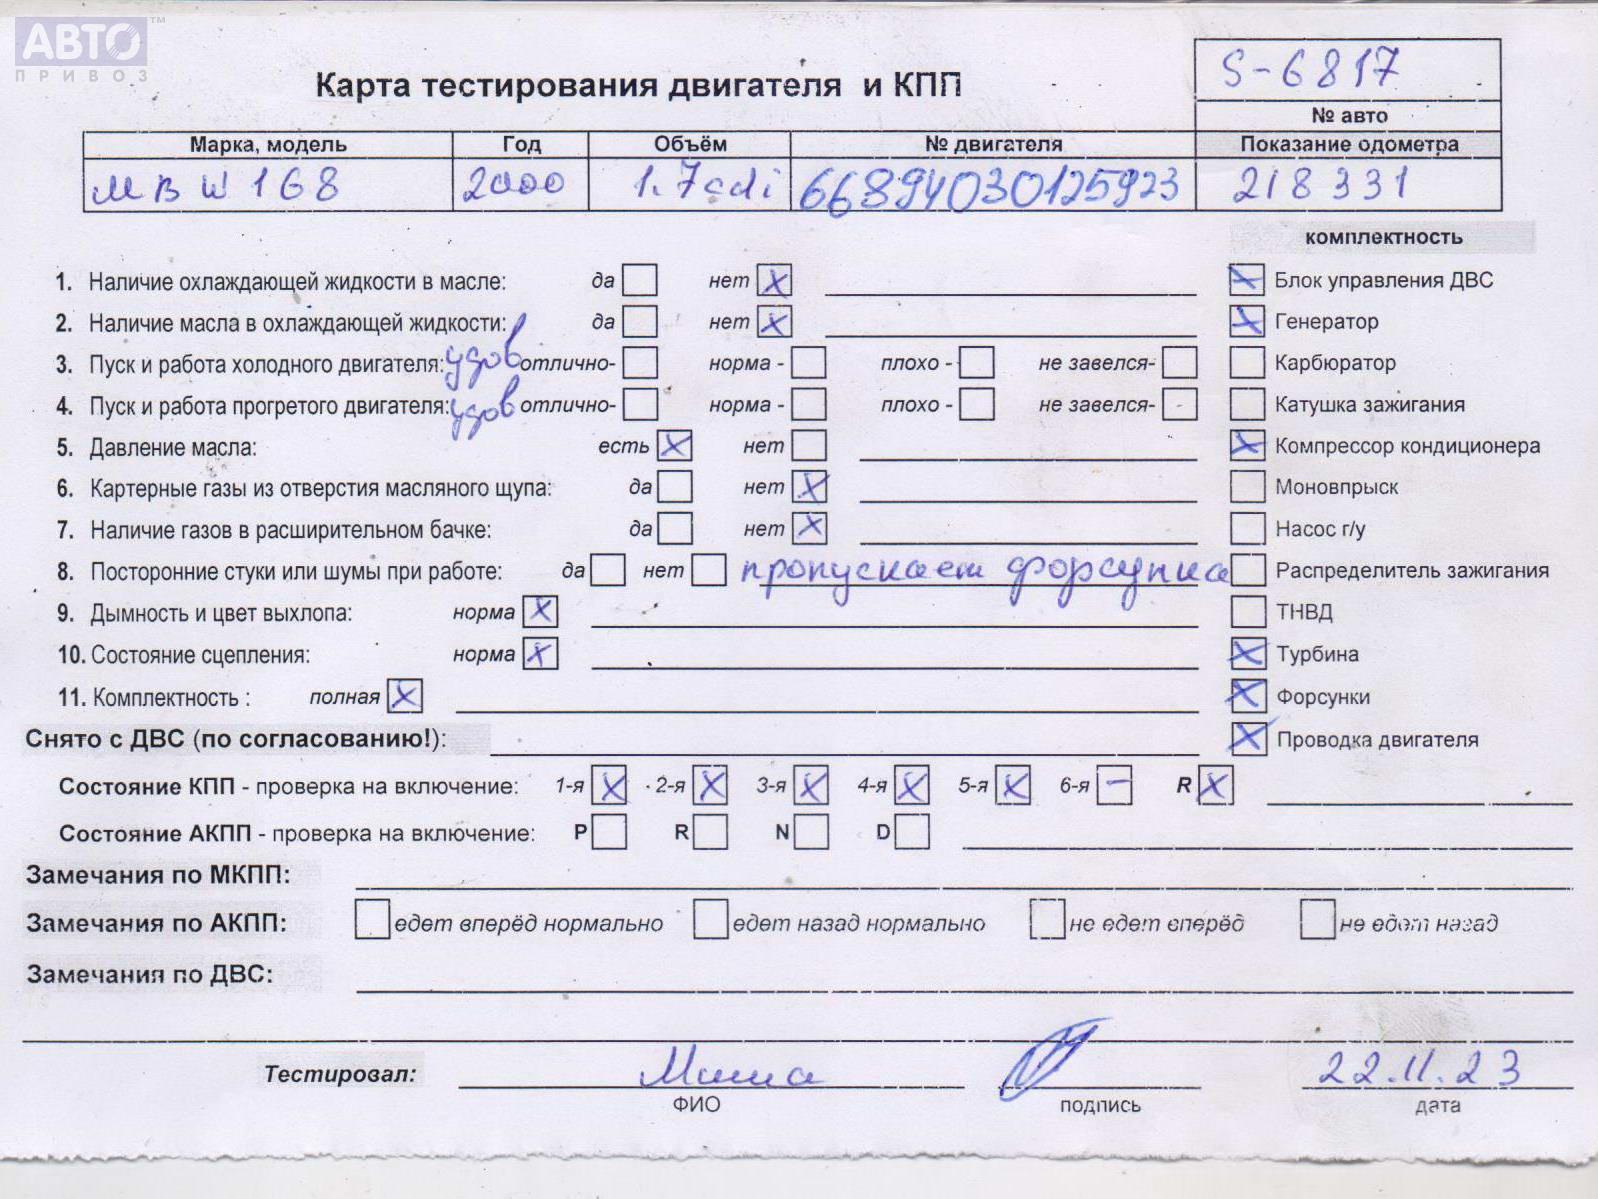 АВТО ™
ПРИВОЗ
S-6817
Карта тестирования двигателя и КПП
№ авто
Марка, модель Год Объём № двигателя Показание одометра
МВ W168 2000 1.7cdi 66894030125923 218331
комплектность
1. Наличие охлаждающей жидкости в масле: да нет X Блок управления ДВС
2. Наличие масла в охлаждающей жидкости: да нет X Генератор
3. Пуск и работа холодного двигателя: удов отлично- норма - плохо - не завелся- Карбюратор
4. Пуск и работа прогретого двигателя: удов отлично- норма - плохо - не завелся- - Катушка зажигания
5. Давление масла: есть X нет Компрессор кондиционера
6. Картерные газы из отверстия масляного щупа: да нет X Моновпрыск
7. Наличие газов в расширительном бачке: да нет X Насос г/у
8. Посторонние стуки или шумы при работе: да нет пропускает форсунка Распределитель зажигания
9. Дымность и цвет выхлопа: норма X ТНВД
10. Состояние сцепления: норма X Турбина
11. Комплектность : полная X Форсунки
Снято с ДВС (по согласованию!): Проводка двигателя
Состояние КПП - проверка на включение: 1-я X 2-я X 3-я X 4-я X 5-я X 6-я - R X
Состояние АКПП - проверка на включение: P R N D
Замечания по МКПП:
Замечания по АКПП: едет вперёд нормально едет назад нормально не едет вперёд не едет назад
Замечания по ДВС:
Тестировал: Миша 22.11.23
ФИО подпись дата